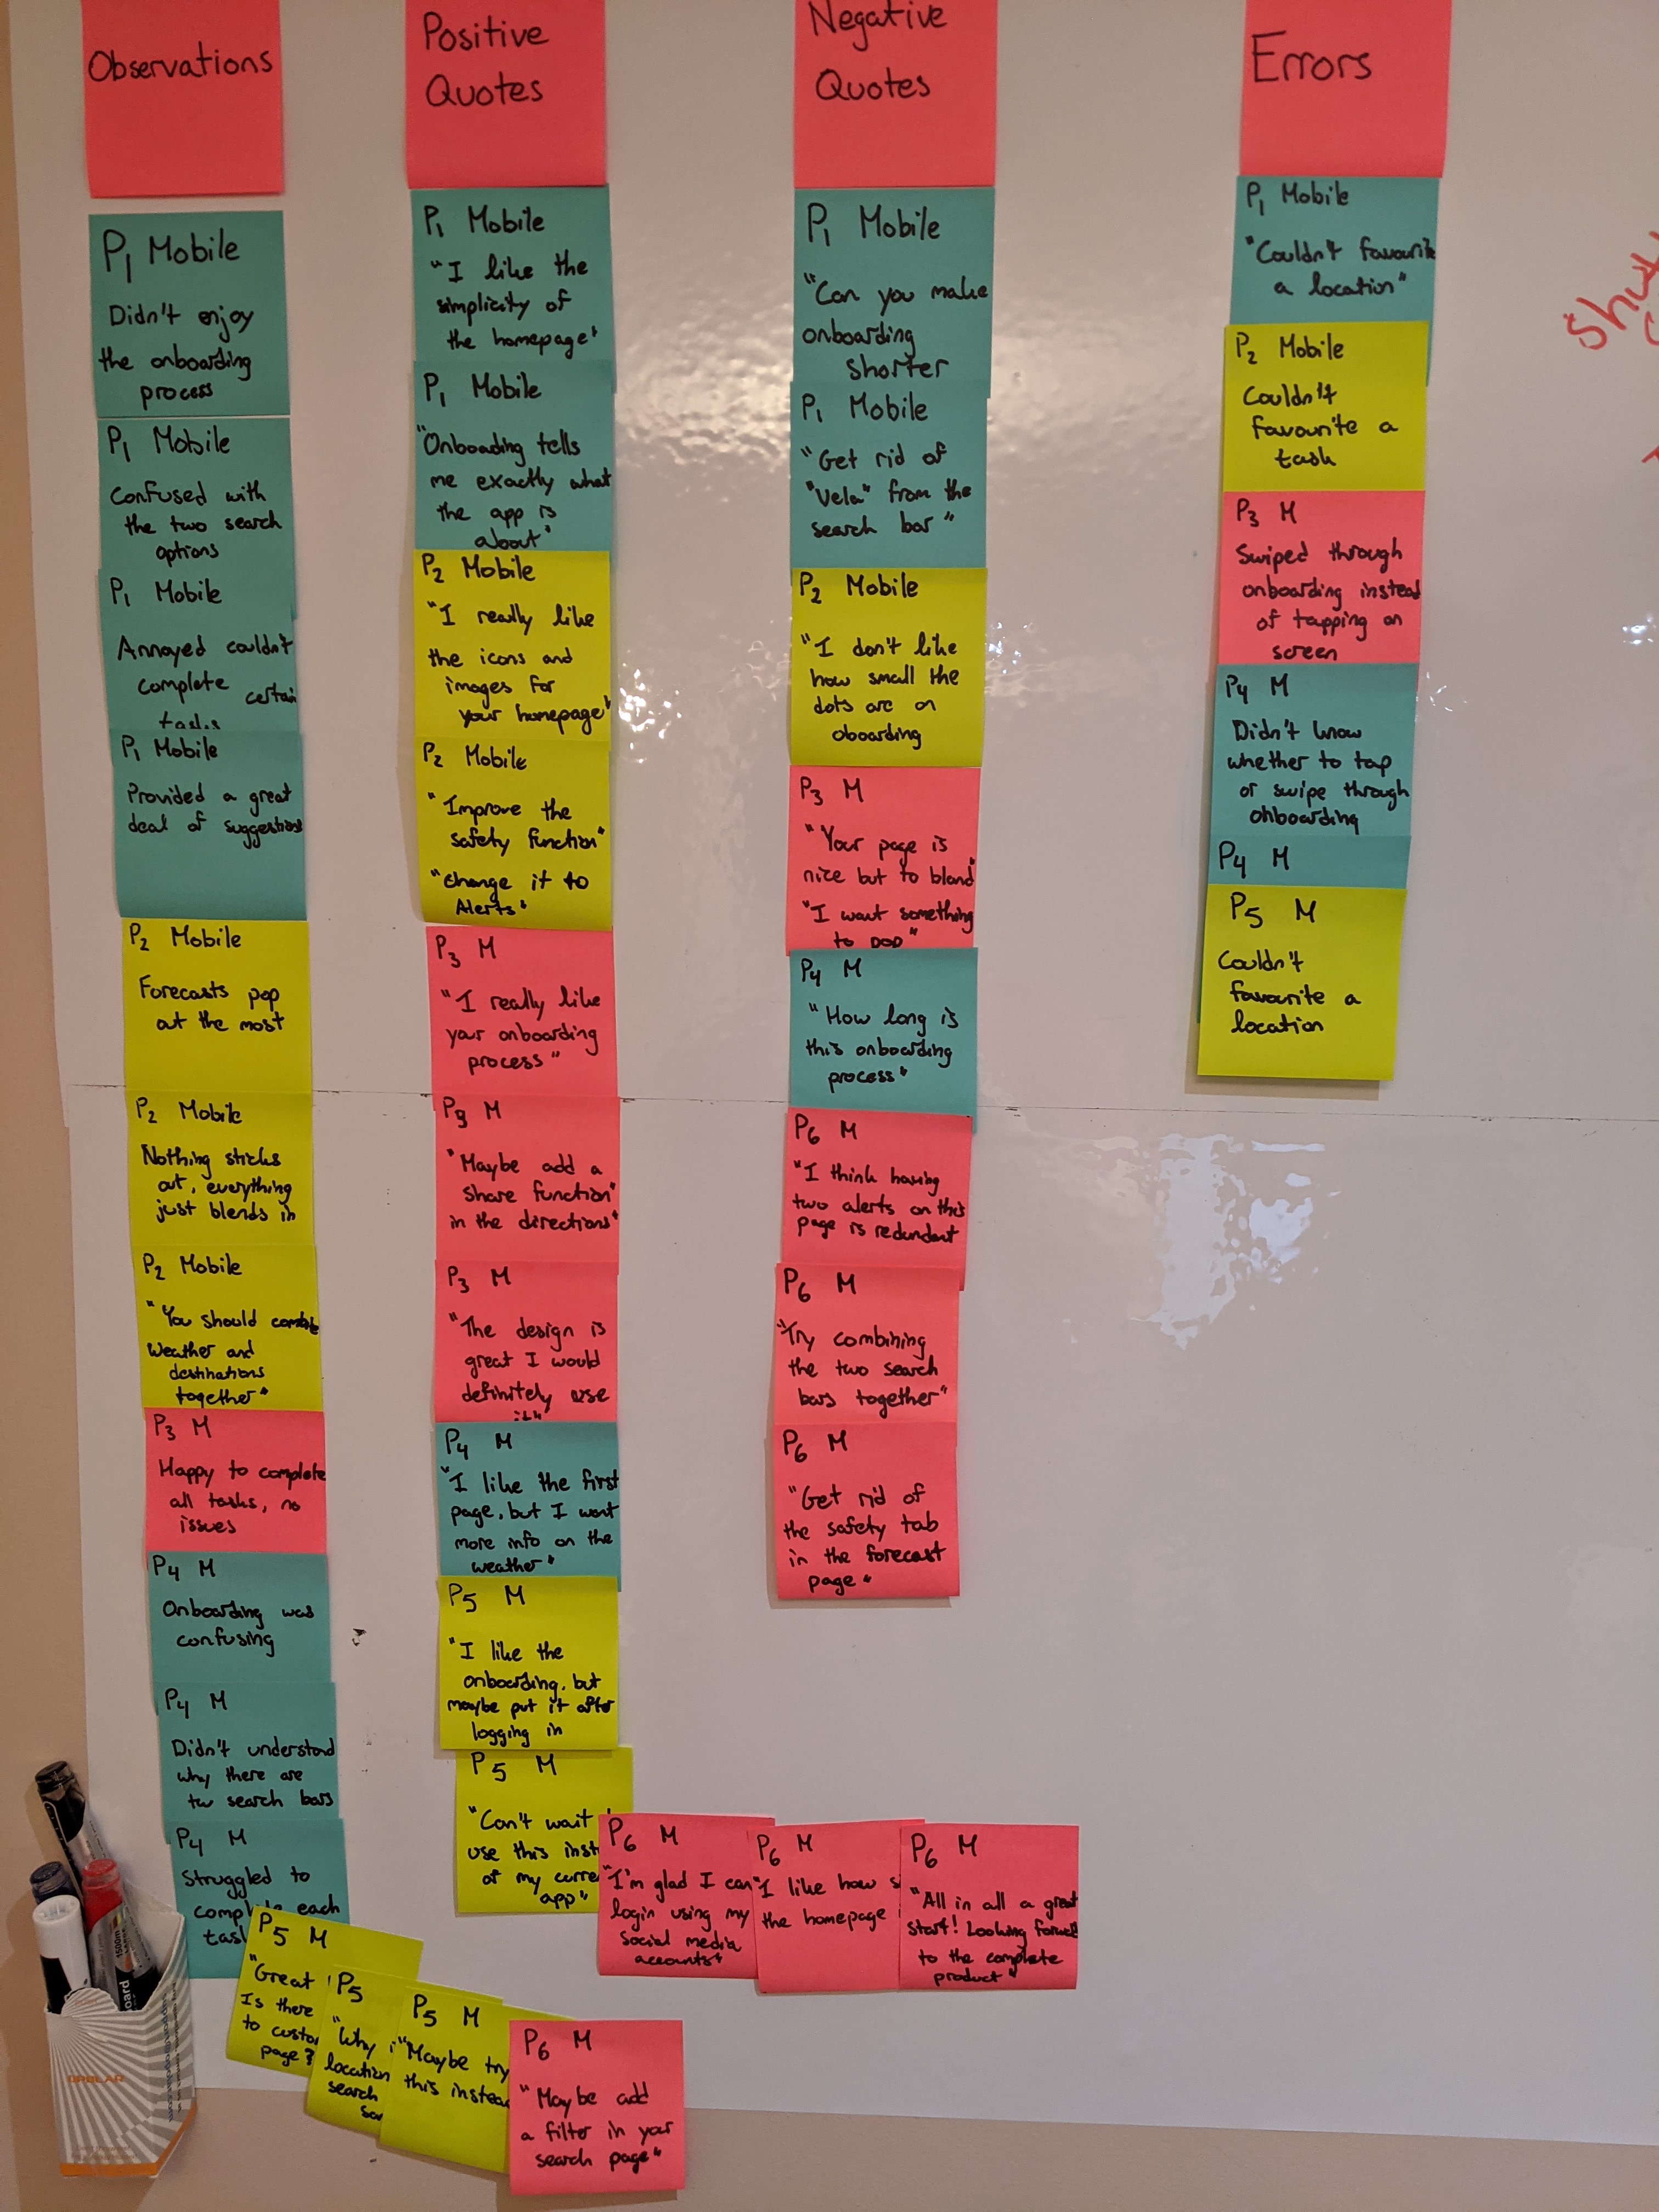 Observations
P1 Mobile
Didn't enjoy
the onboarding
process
P1 Mobile
Confused with
the two search
options
P1 Mobile
Annoyed couldn't
complete certain
tasks
P1 Mobile
Provided a great
deal of suggestions
P2 Mobile
Forecasts pop
out the most
P2 Mobile
Nothing sticks
out, everything
just blends in
P2 Mobile
"You should combine
weather and
destinations
together"
P3 M
Happy to complete
all tasks, no
issues
P4 M
Onboarding was
confusing
P4 M
Didn't understand
why there are
tw search bars
P4 M
Struggled to
complete each
task
P5 M
"Great
Is there
to custo
page?
P5
"Why i
location
search
P5 M
"Maybe try
this instea
P6 M
"Maybe add
a filter in your
search page"
Positive
Quotes
P1 Mobile
"I like the
simplicity of
the homepage"
P1 Mobile
"Onboading tells
me exactly what
the app is
about"
P2 Mobile
"I really like
the icons and
images for
your homepage"
P2 Mobile
"Improve the
safety function"
"change it to
Alerts"
P3 M
"I really like
your onboarding
process"
P3 M
"Maybe add a
share function"
in the directions"
P3 M
"The design is
great I would
definitely use
it"
P4 M
"I like the first
page, but I want
more info on the
weather"
P5 M
"I like the
onboarding, but
maybe put it after
logging in
P5 M
"Can't wait
use this inst
of my curre
app"
P6 M
"I'm glad I can
login using my
social media
accounts"
P6 M
"I like how s
the homepage
P6 M
"All in all a great
start! Looking forward
to the complete
product"
Negative
Quotes
P1 Mobile
"Can you make
onboarding
shorter
P1 Mobile
"Get rid of
"Vela" from the
search bar"
P2 Mobile
"I don't like
how small the
dots are on
oboarding
P3 M
"Your page is
nice but to bland"
"I want something
to pop"
P4 M
"How long is
this onboarding
process"
P6 M
"I think having
two alerts on this
page is redundant
P6 M
"Try combining
the two search
bars together"
P6 M
"Get rid of
the safety tab
in the forecast
page"
Errors
P1 Mobile
"Couldn't favourite
a location"
P2 Mobile
Couldn't
favourite a
task
P3 M
Swiped through
onboarding instead
of tapping on
screen
P4 M
Didn't know
whether to tap
or swipe through
onboarding
P4 M
P5 M
Couldn't
favourite a
location